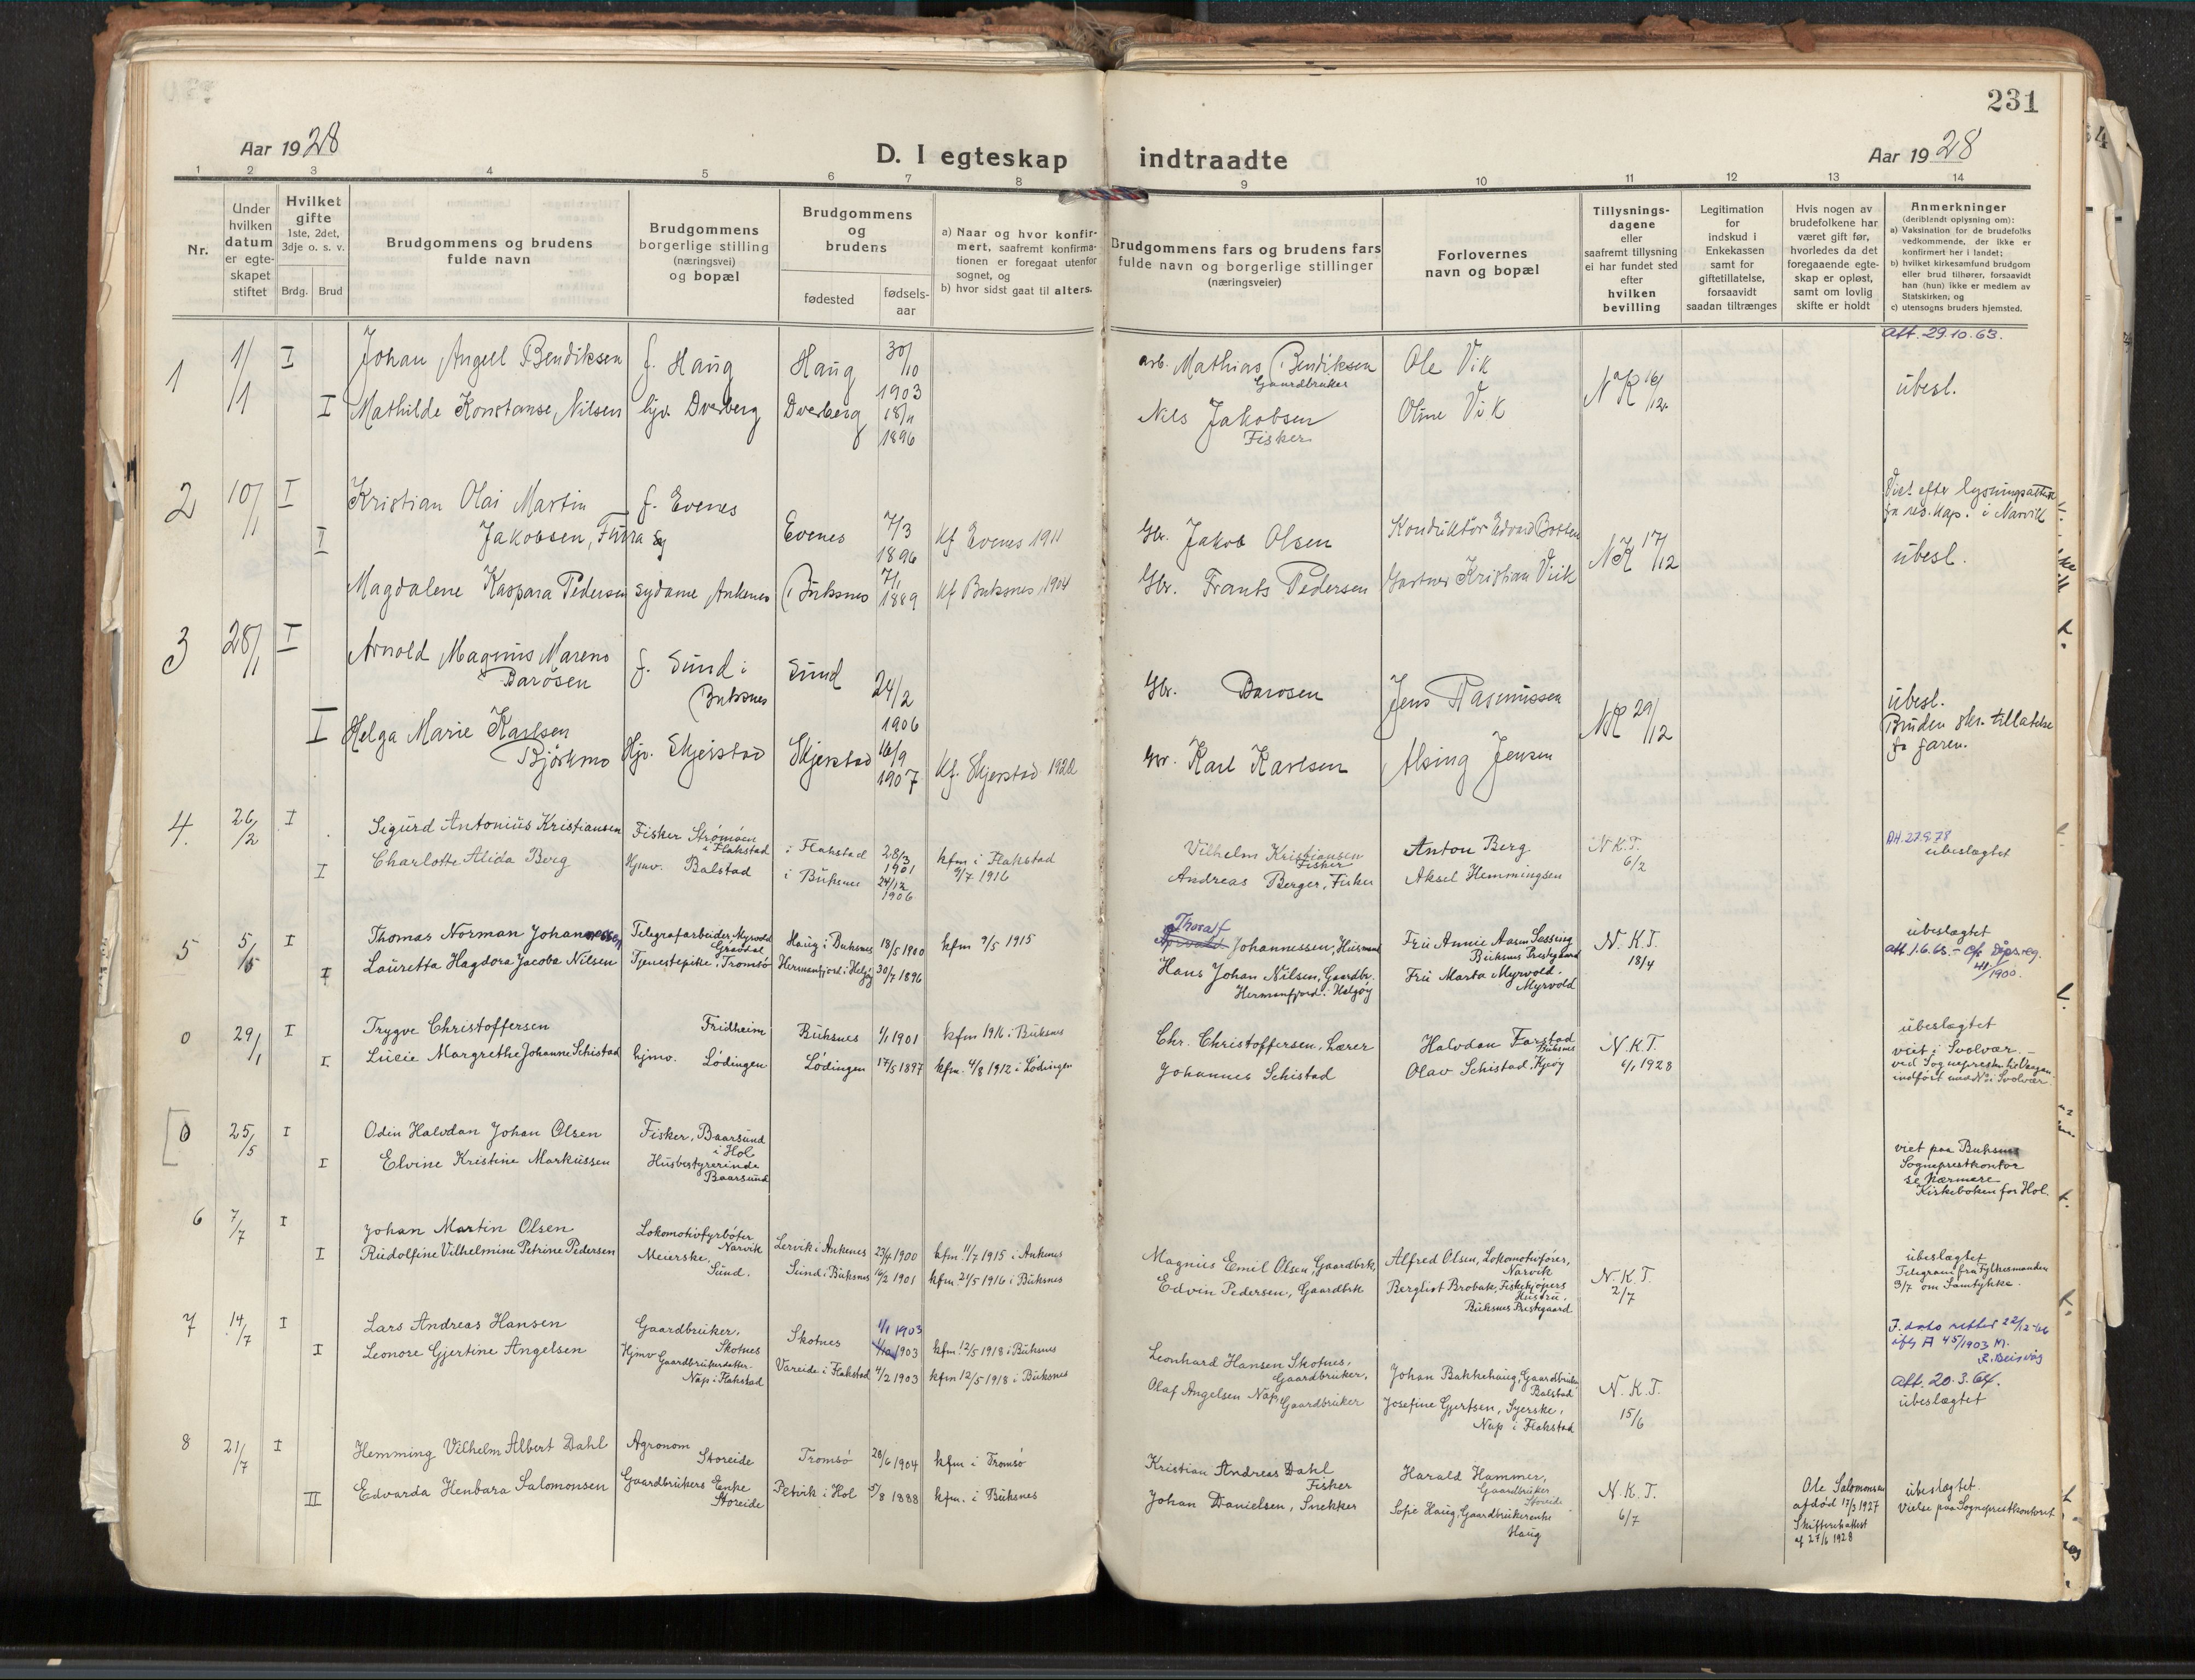 231
Aar 1928
D. I egteskap indtraadte
Aar 1928
1 2 3 4 5 6 7 8 9 10 11 12 13 14
Nr.
Under hvilken datum er egte-skapet stiftet
Hvilket gifte 1ste, 2det, 3dje o. s. v.
Brdg. Brud
Brudgommens og brudens fulde navn
Brudgommens borgerlige stilling (næringsvei) og bopæl
Brudgommens og brudens
fødested
fødsels-aar
a) Naar og hvor konfir-mert, saafremt konfirma-tionen er foregaat utenfor sognet, og
b) hvor sidst gaat til alters.
Brudgommens fars og brudens fars fulde navn og borgerlige stillinger (næringsveier)
Forlovernes navn og bopæl
Tillysnings-dagene eller saafremt tillysning ei har fundet sted efter hvilken bevilling
Legitimation for indskud i Enkekassen samt for giftetillatelse, forsaavidt saadan tiltrænges
Hvis nogen av brudefolkene har været gift før, hvorledes da det foregaaende egte-skap er opløst, samt om lovlig skifte er holdt
Anmerkninger (deriblandt oplysning om):
a) Vaksination for de brudefolks vedkommende, der ikke er konfirmert her i landet;
b) hvilket kirkesamfund brudgom eller brud tilhører, forsaavidt han (hun) ikke er medlem av Statskirken, og
c) utensogns bruders hjemsted.
att. 29.10.63.
1 1/1 I Johan Angell Bendiksen f. Haug Haug 30/10 1903 arb. Mathias Bendiksen Gaardbruker Ole Vik NK 16/12 ubesl.
I Mathilde Konstanse Nilsen hjv. Dverberg Dverberg 18/11 1896 Nils Jakobsen Fisker Oline Vik
2 10/1 I Kristian Olai Martin Jakobsen, Fura f. Evenes Evenes 7/3 1896 Kf Evenes 1911 Gbr. Jakob Olsen Konduktør Edvard Botten NK 17/12 Viet efter lysningsattest fra res. kap. i Narvik
ubesl.
I Magdalene Kaspara Pedersen sydame Ankenes Buksnes 7/1 1889 Kf Buksnes 1904 Gbr. Frants Pedersen Gartner Kristian Vik
3 28/1 I Arnold Magnus Mareno Barosen f. Sund i Buksnes Sund 24/2 1906 Gbr. Barosen Jens Rasmussen NK 29/12 ubesl.
Bruden skr. tillatelse fra faren.
I Helga Marie Karlsen Bjørkmo Hjv. Skjerstad Skjerstad 16/9 1907 Kf. Skjerstad 1922 Gbr. Karl Karlsen Alsing Jensen
4. 26/2 I Sigurd Antonius Kristiansen Fisker Strømøen i Flakstad i Flakstad 28/3 1901 kfm i Flakstad 9/7 1916 Vilhelm Kristiansen Fisker Anton Berg N.K.T. 6/2 Att. 27.9.78
ubeslægtet
I Charlotte Alida Berg Hjmv. Balstad i Buksnes 24/12 1906 Andreas Berger, Fisker Aksel Hemmingsen
5 5/5 I Thomas Norman Johannessen Telegrafarbeider Myrvold Gravdal Haug i Buksnes 18/5 1900 kfm 9/5 1915 Thoralf Johannessen, Husmand Fru Annie Aasen Sessing Buksnes Prestegaard N.K.T. 18/4 ubeslægtet
att. 1.6.65. - Cfr. dåpsreg. 41/1900.
I Lauretta Hagdora Jacoba Nilsen Tjenestepike, Tromsø Hermanfjord i Helgøy 30/7 1896 Hans Johan Nilsen, Gaardbr. Hermanfjord i Helgøy Fru Marta Myrvold. Myrvold
0 29/1 I Trygve Christoffersen Fridheim Buksnes 1/1 1901 kfm 1916 i Buksnes Chr. Christoffersen, Lærer Halvdan Farstad Buksnes N.K.T. 6/1 1928 ubeslægtet
viet i Svolvær. -
ved Sogneprest
indført under No i Svolvær
I Lucie Margrethe Johanne Schistad hjmv. Lødingen Lødingen 17/5 1897 kfm. 4/8 1912 i Lødingen Johannes Schistad Olav Schistad, Kjeøy
0 25/5 I Odin Halvdan Johan Olsen Fisker, Baarsund i Hol viet paa Buksnes Sogneprestkontor se Nærmere Kirkeboken for Hol.
I Elvine Kristine Markussen Husbestyrerinde Baarsund
6 7/7 I Johan Martin Olsen Lokomotivfyrbøter Narvik Lervik i Ankenes 23/4 1900 kfm. 11/7 1915 i Ankenes Magnus Emil Olsen, Gaardbrk, Alfred Olsen, Lokomotivfører, Narvik N.K.T. 2/7 ubeslægtet
Telegram fra Fylkesmanden 3/7 om Samtykke.
I Rudolfine Vilhelmine Petrine Pedersen Meierske, Sund. Sund i Buksnes 16/2 1901 kfm. 21/5 1916 i Buksnes Edvin Pedersen, Gaardbrk Bergliot Brobak, Fiskekjøpers Hustru. Buksnes Prestegaard
7 14/7 I Lars Andreas Hansen Gaardbruker, Skotnes Skotnes 1/1 1903 1903 kfm. 12/5 1918 i Buksnes Leonhard Hansen Skotnes, Gaardbruker, Johan Bakkehaug, Gaardbruker Balstad N.K.T. 15/6 F. dato rettet 22/12-66 iflg A 45/1903 M. R. Beisvåg
att. 20.3.64.
ubeslægtet
I Leonore Gjertine Angelsen Hjmv Gaardbrukerdatter Nap i Flakstad Vareide i Flakstad 4/2 1903 kfm 12/5 1918 i Buksnes Olaf Angelsen Nap, Gaardbruker Josefine Gjertsen, Syerske, Nap i Flakstad
8 21/7 I Hemming Vilhelm Albert Dahl Agronom Storeide Tromsø 28/6 1904 kfm i Tromsø Kristian Andreas Dahl Fisker Harald Hammer, Gaardbruker Storeide N.K.T. 6/7 Ole Salomonsen afdød 17/3 1927 Skifteretsattest af 27/6 1928 ubeslægtet.
Vielse paa Sogneprestkontoret
II Edvarda Henbara Salomonsen Gaardbrukers Enke Storeide Petvik i Hol 5/8 1888 kfm. i Buksnes Johan Danielsen, Snekker Sofie Haug, Gaardbrukerenke Haug